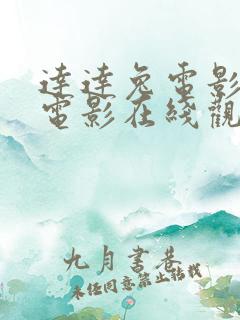 達達兔電影
電影在綫觀
九月書巷
未經同意禁止轉載